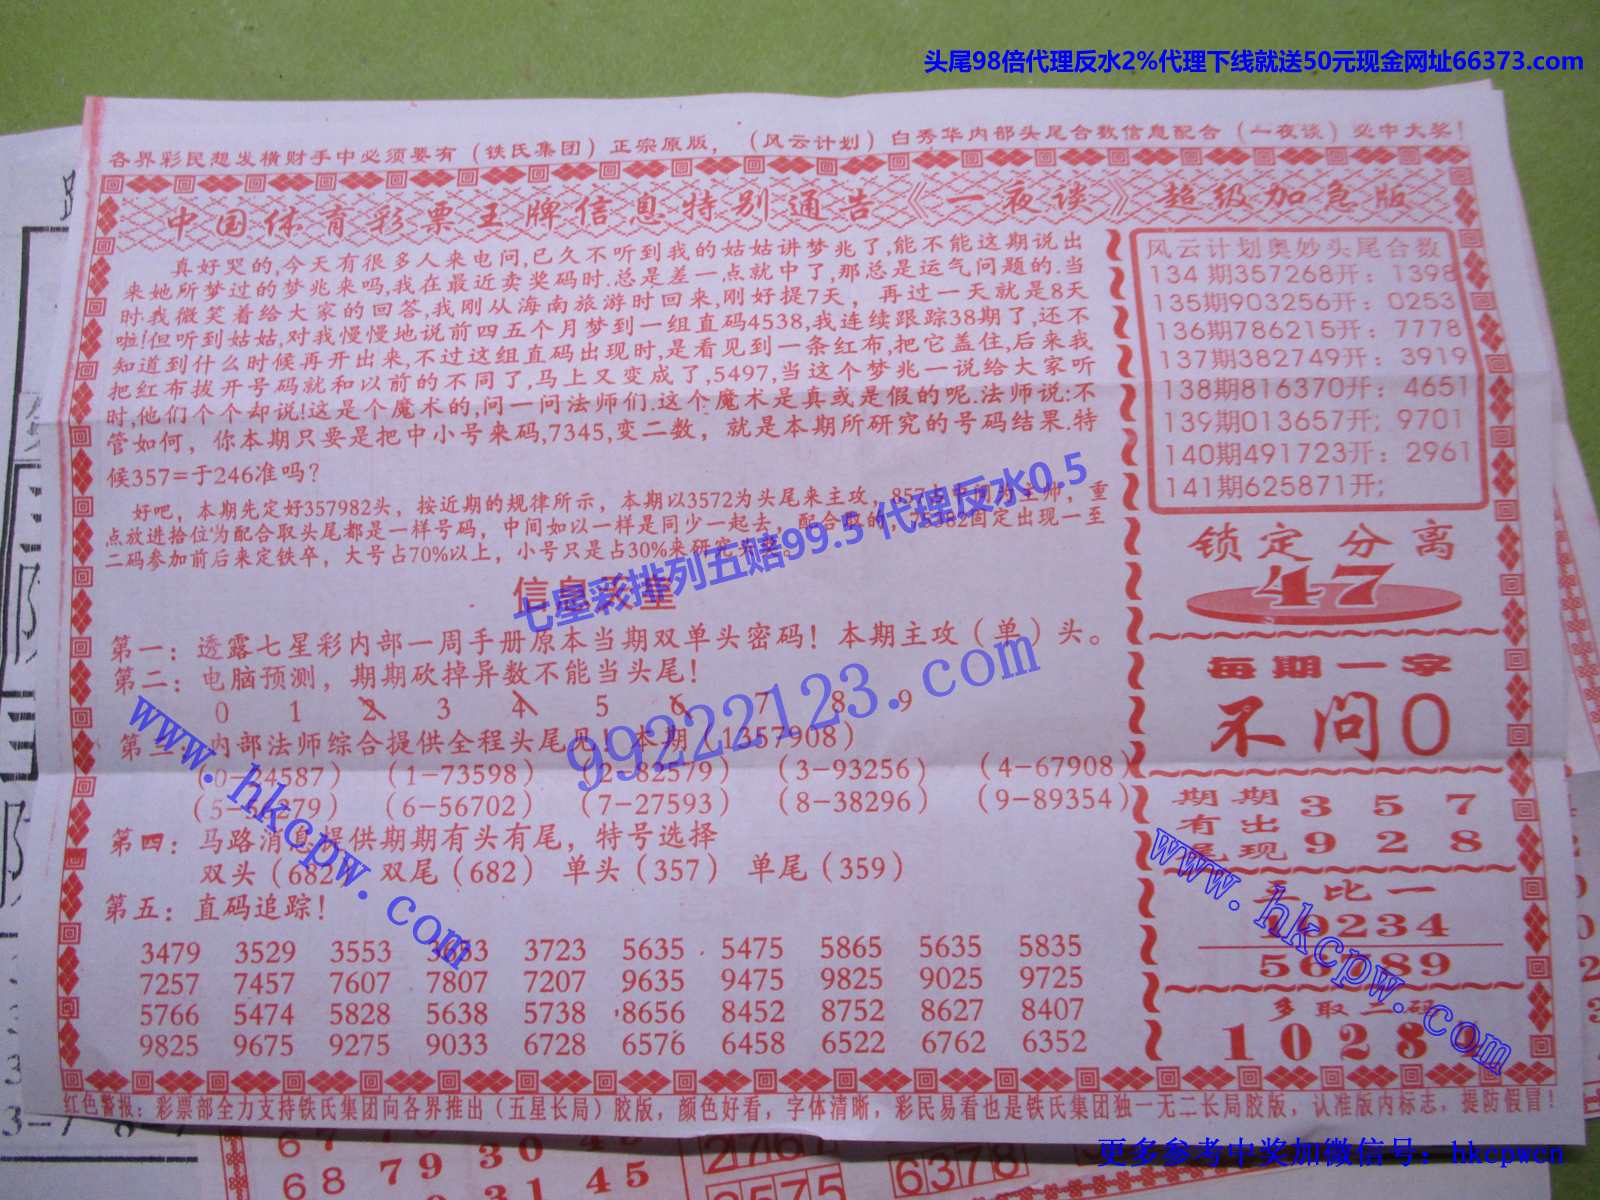 头尾98倍代理反水2%代理下线就送50元现金网址66373.com
各界彩民想发横财手中必须要有（铁氏集团）正宗原版，（风云计划）白秀华内部头尾合数信息配合（一夜谈）必中大奖！
中国体育彩票王牌信息特别通告《一夜谈》超级加急版
真好哭的,今天有很多人来电问,已久不听到我的姑姑讲梦兆了,能不能这期说出
来她所梦过的梦兆来吗,我在最近卖奖码时.总是差一点就中了,那总是运气问题的.当
时我微笑着给大家的回答,我刚从海南旅游时回来,刚好提7天，再过一天就是8天
啦!但听到姑姑,对我慢慢地说前四五个月梦到一组直码4538,我连续跟踪38期了,还不
知道到什么时候再开出来,不过这组直码出现时,是看见到一条红布,把它盖住,后来我
把红布拔开号码就和以前的不同了,马上又变成了,5497,当这个梦兆一说给大家听
时,他们个个却说!这是个魔术的,问一问法师们.这个魔术是真或是假的呢.法师说:不
管如何，你本期只要是把中小号来码,7345,变二数，就是本期所研究的号码结果.特
候357=于246准吗?
好吧，本期先定好357982头，按近期的规律所示，本期以3572为头尾来主攻，857点中间为主帅，重
点放进拾位为配合取头尾都是一样号码，中间如以一样是同少一起去，配合取的，75382固定出现一至
二码参加前后来定铁卒，大号占70%以上，小号只是占30%来研究
七星彩排列五赔99.5 代理反水0.5
信息彩堂
第一：透露七星彩内部一周手册原本当期双单头密码！本期主攻（单）头。
第二：电脑预测，期期砍掉异数不能当头尾！
0 1 2 3 4 5 6 7 8 9
第三：内部法师综合提供全程头尾见！本期（1357908）
（0-34587）（1-73598）（2-82579）（3-93256）（4-67908）
（5-279）（6-56702）（7-27593）（8-38296）（9-89354）
第四：马路消息提供期期有头有尾，特号选择
双头（682）双尾（682）单头（357）单尾（359）
第五：直码追踪！
3479 3529 3553 3653 3723 5635 5475 5865 5635 5835
7257 7457 7607 7807 7207 9635 9475 9825 9025 9725
5766 5474 5828 5638 5738 8656 8452 8752 8627 8407
9825 9675 9275 9033 6728 6576 6458 6522 6762 6352
风云计划奥妙头尾合数
134期357268开：1398
135期903256开：0253
136期786215开：7778
137期382749开：3919
138期816370开：4651
139期013657开；9701
140期491723开：2961
141期625871开;
锁定分离
47
每期一字
不问0
期期 3 5 7
有出
尾现 9 2 8
五比一
10234
56789
多取二码
1028
红色警报：彩票部全力支持铁氏集团向各界推出（五星长局）胶版，颜色好看，字体清晰，彩民易看也是铁氏集团独一无二长局胶版，认准版内标志，提防假冒！
99222123.com
www.hkcpw.com
www.hkcpw.com
更多参考中奖加微信号：hkcpwcn
68 79 30 45
31 45
2767
6378
3575